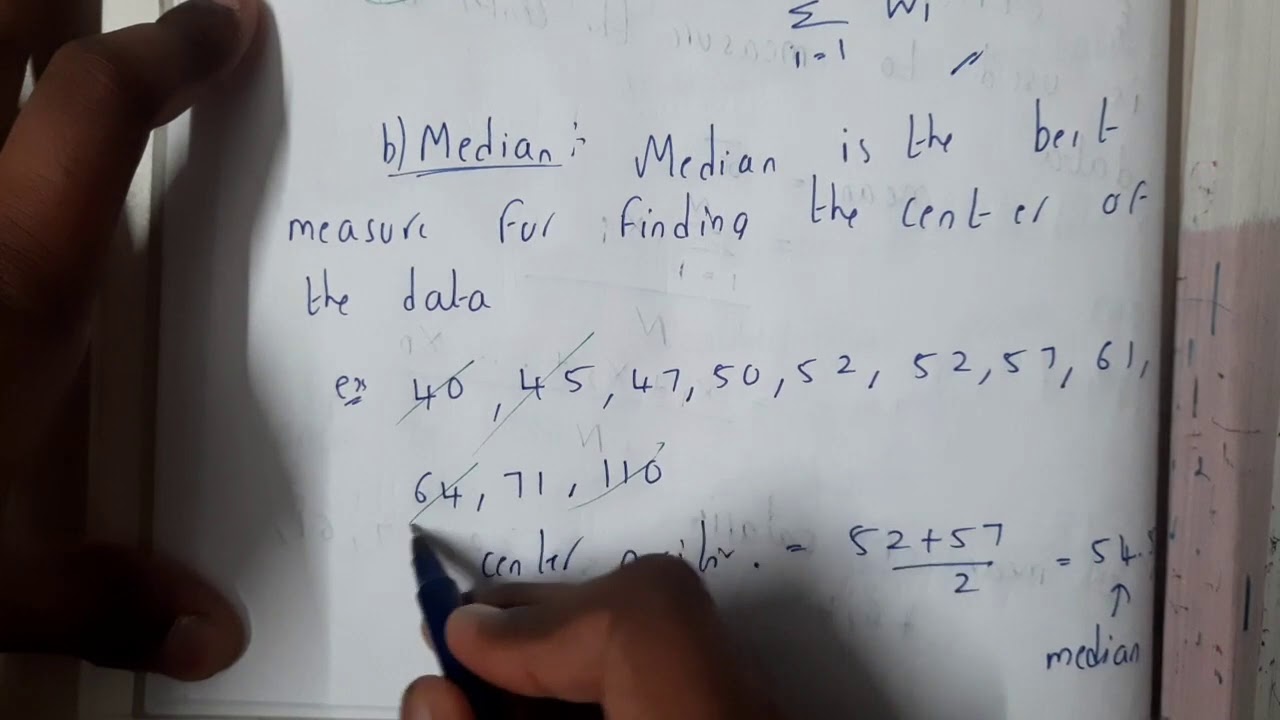 Σ Wi
i=1
b) Median :- Median is the best
measure for finding the center of
the data
ex 40, 45, 47, 50, 52, 52, 57, 61,
64, 71, 110
center = 52+57 / 2 = 54.5
↑
median